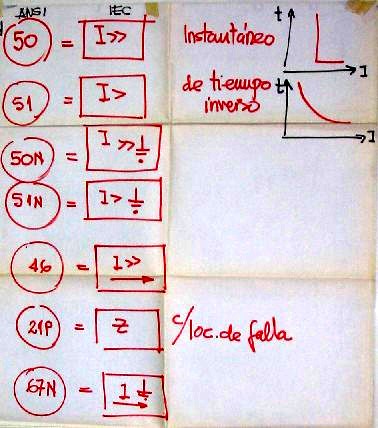 ANSI IEC
50 = I>> Instantáneo t I
51 = I> de tiempo inverso t I
50N = I>> ⏚
51N = I> ⏚
46 = I>>
21P = Z c/loc. de falla
67N = I ⏚